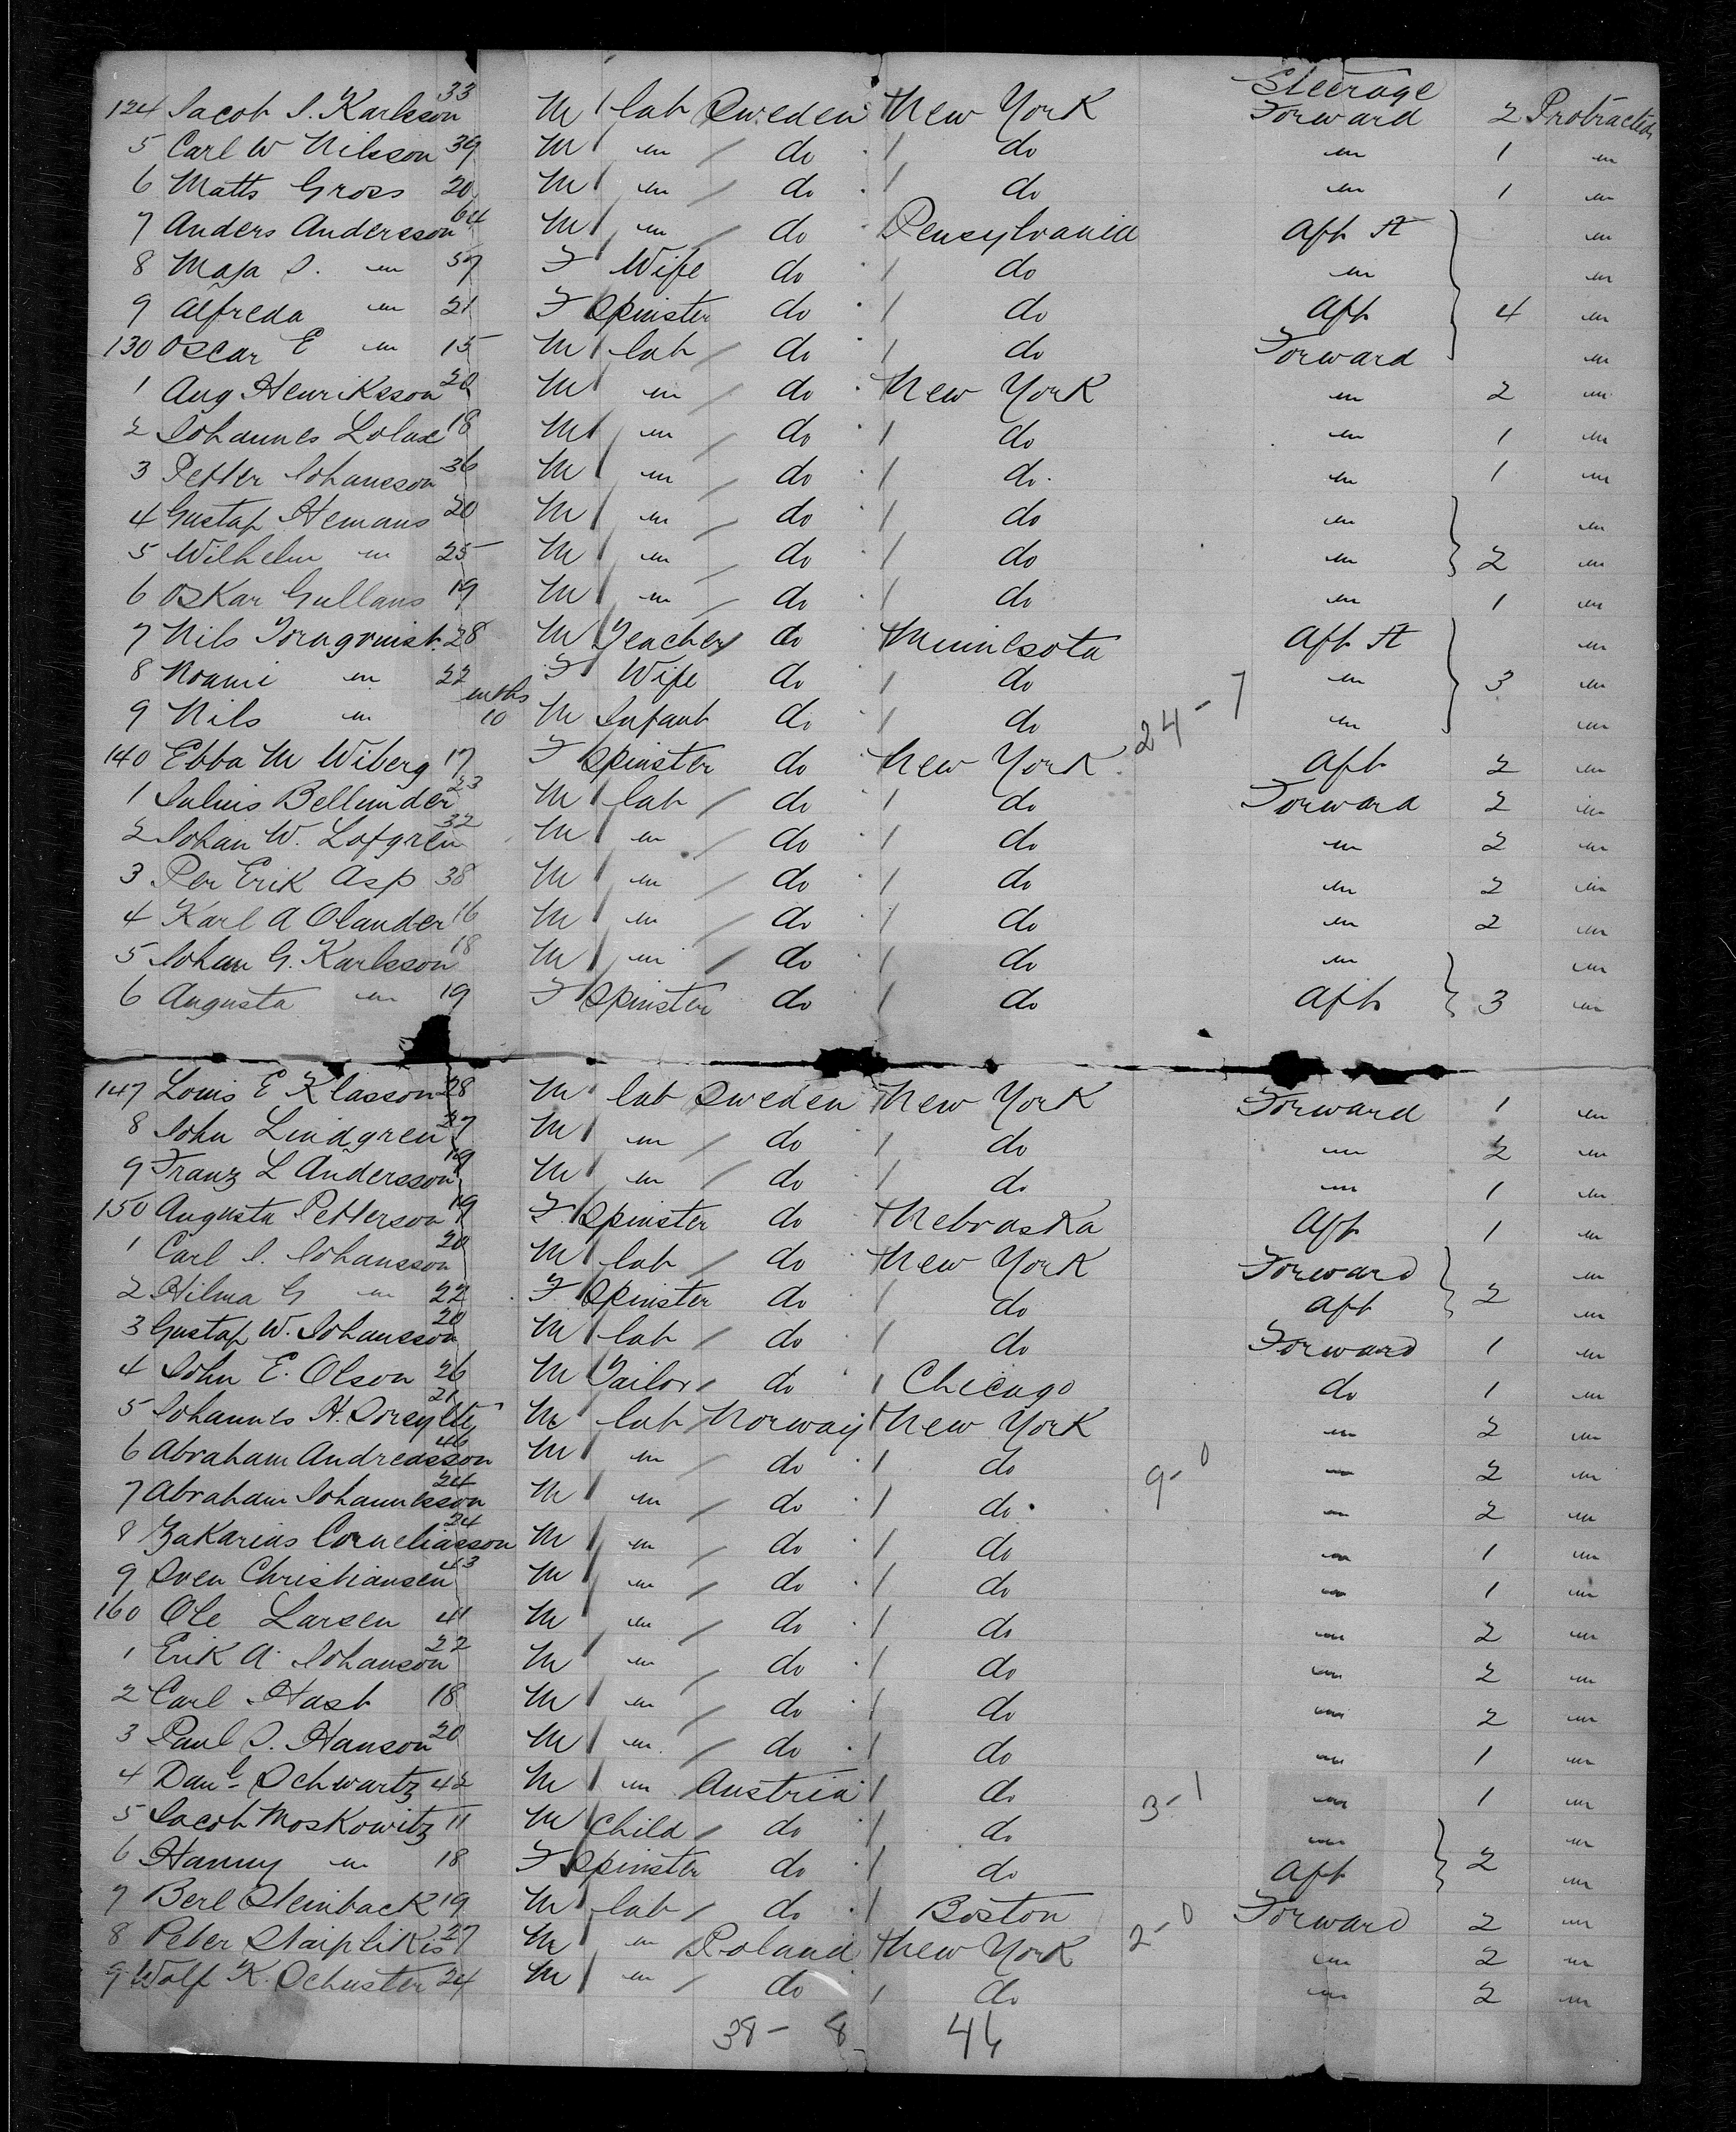 Steerage
124 Jacob S. Karlsson 33 M lab Sweden New York Forward 2 Protracted
5 Carl W Nilsson 39 M " do do " 1 "
6 Matts Gross 20 M " do do " 1 "
7 Anders Andersson 64 M " do Pensylvania Aft St "
8 Maja S. " 57 F Wife do do " "
9 Alfreda " 21 F Spinster do do Aft 4 "
130 Oscar E " 15 M lab do do Forward "
1 Aug Henriksson 20 M " do New York " 2 "
2 Johannes Lolax 18 M " do do " 1 "
3 Petter Johansson 36 M " do do " 1 "
4 Gustaf Hemans 20 M " do do " "
5 Wilhelm " 25 M " do do " 2 "
6 Oskar Gullans 19 M " do do " 1 "
7 Nils Tornqvist 28 M Teacher do Minnesota Aft St "
8 Noami " 22 F Wife do do " 3 "
9 Nils " mths 10 M Infant do do 24-7 " "
140 Ebba M Wiberg 17 F Spinster do New York Aft 2 "
1 Julius Bellander 23 M lab do do Forward 2 "
2 Johan W. Lofgren 32 M " do do " 2 "
3 Per Erik Asp 38 M " do do " 2 "
4 Karl A Olander 16 M " do do " 2 "
5 Johan G. Karlsson 18 M " do do " "
6 Augusta " 19 F Spinster do do Aft 3 "
147 Louis E Klasson 28 M lab Sweden New York Forward 1 "
8 John Lindgren 37 M " do do " 2 "
9 Franz L Andersson 19 M " do do " 1 "
150 Augusta Petterson 19 F Spinster do Nebraska Aft 1 "
1 Carl S. Johansson 20 M lab do New York Forward "
2 Hilma G " 22 F Spinster do do Aft 2 "
3 Gustaf W. Johansson 20 M lab do do Forward 1 "
4 John E. Olson 26 M Tailor do Chicago do 1 "
5 Johannes H. 21 M lab Norway New York " 2 "
6 Abraham Andreasson 46 M " do do 9-0 " 2 "
7 Abraham Johannesson 24 M " do do " 2 "
8 Zakarias Corneliasson 24 M " do do " 1 "
9 Sven Christiansen 43 M " do do " 1 "
160 Ole Larsen 41 M " do do " 2 "
1 Erik A. Johanson 22 M " do do " 2 "
2 Carl Hast 18 M " do do " 2 "
3 Paul S. Hanson 20 M " do do " 1 "
4 Danl Schwartz 42 M " Austria do 3-1 " 1 "
5 Jacob Moskowitz 11 M Child do do " "
6 Hanny " 18 F Spinster do do Aft 2 "
7 Berl Steinback 19 M lab do Boston Forward 2 "
8 Peter Staiplikis 27 M " Poland New York 2-0 " 2 "
9 Wolf K. Schuster 24 M " do do " 2 "
38- 8 46